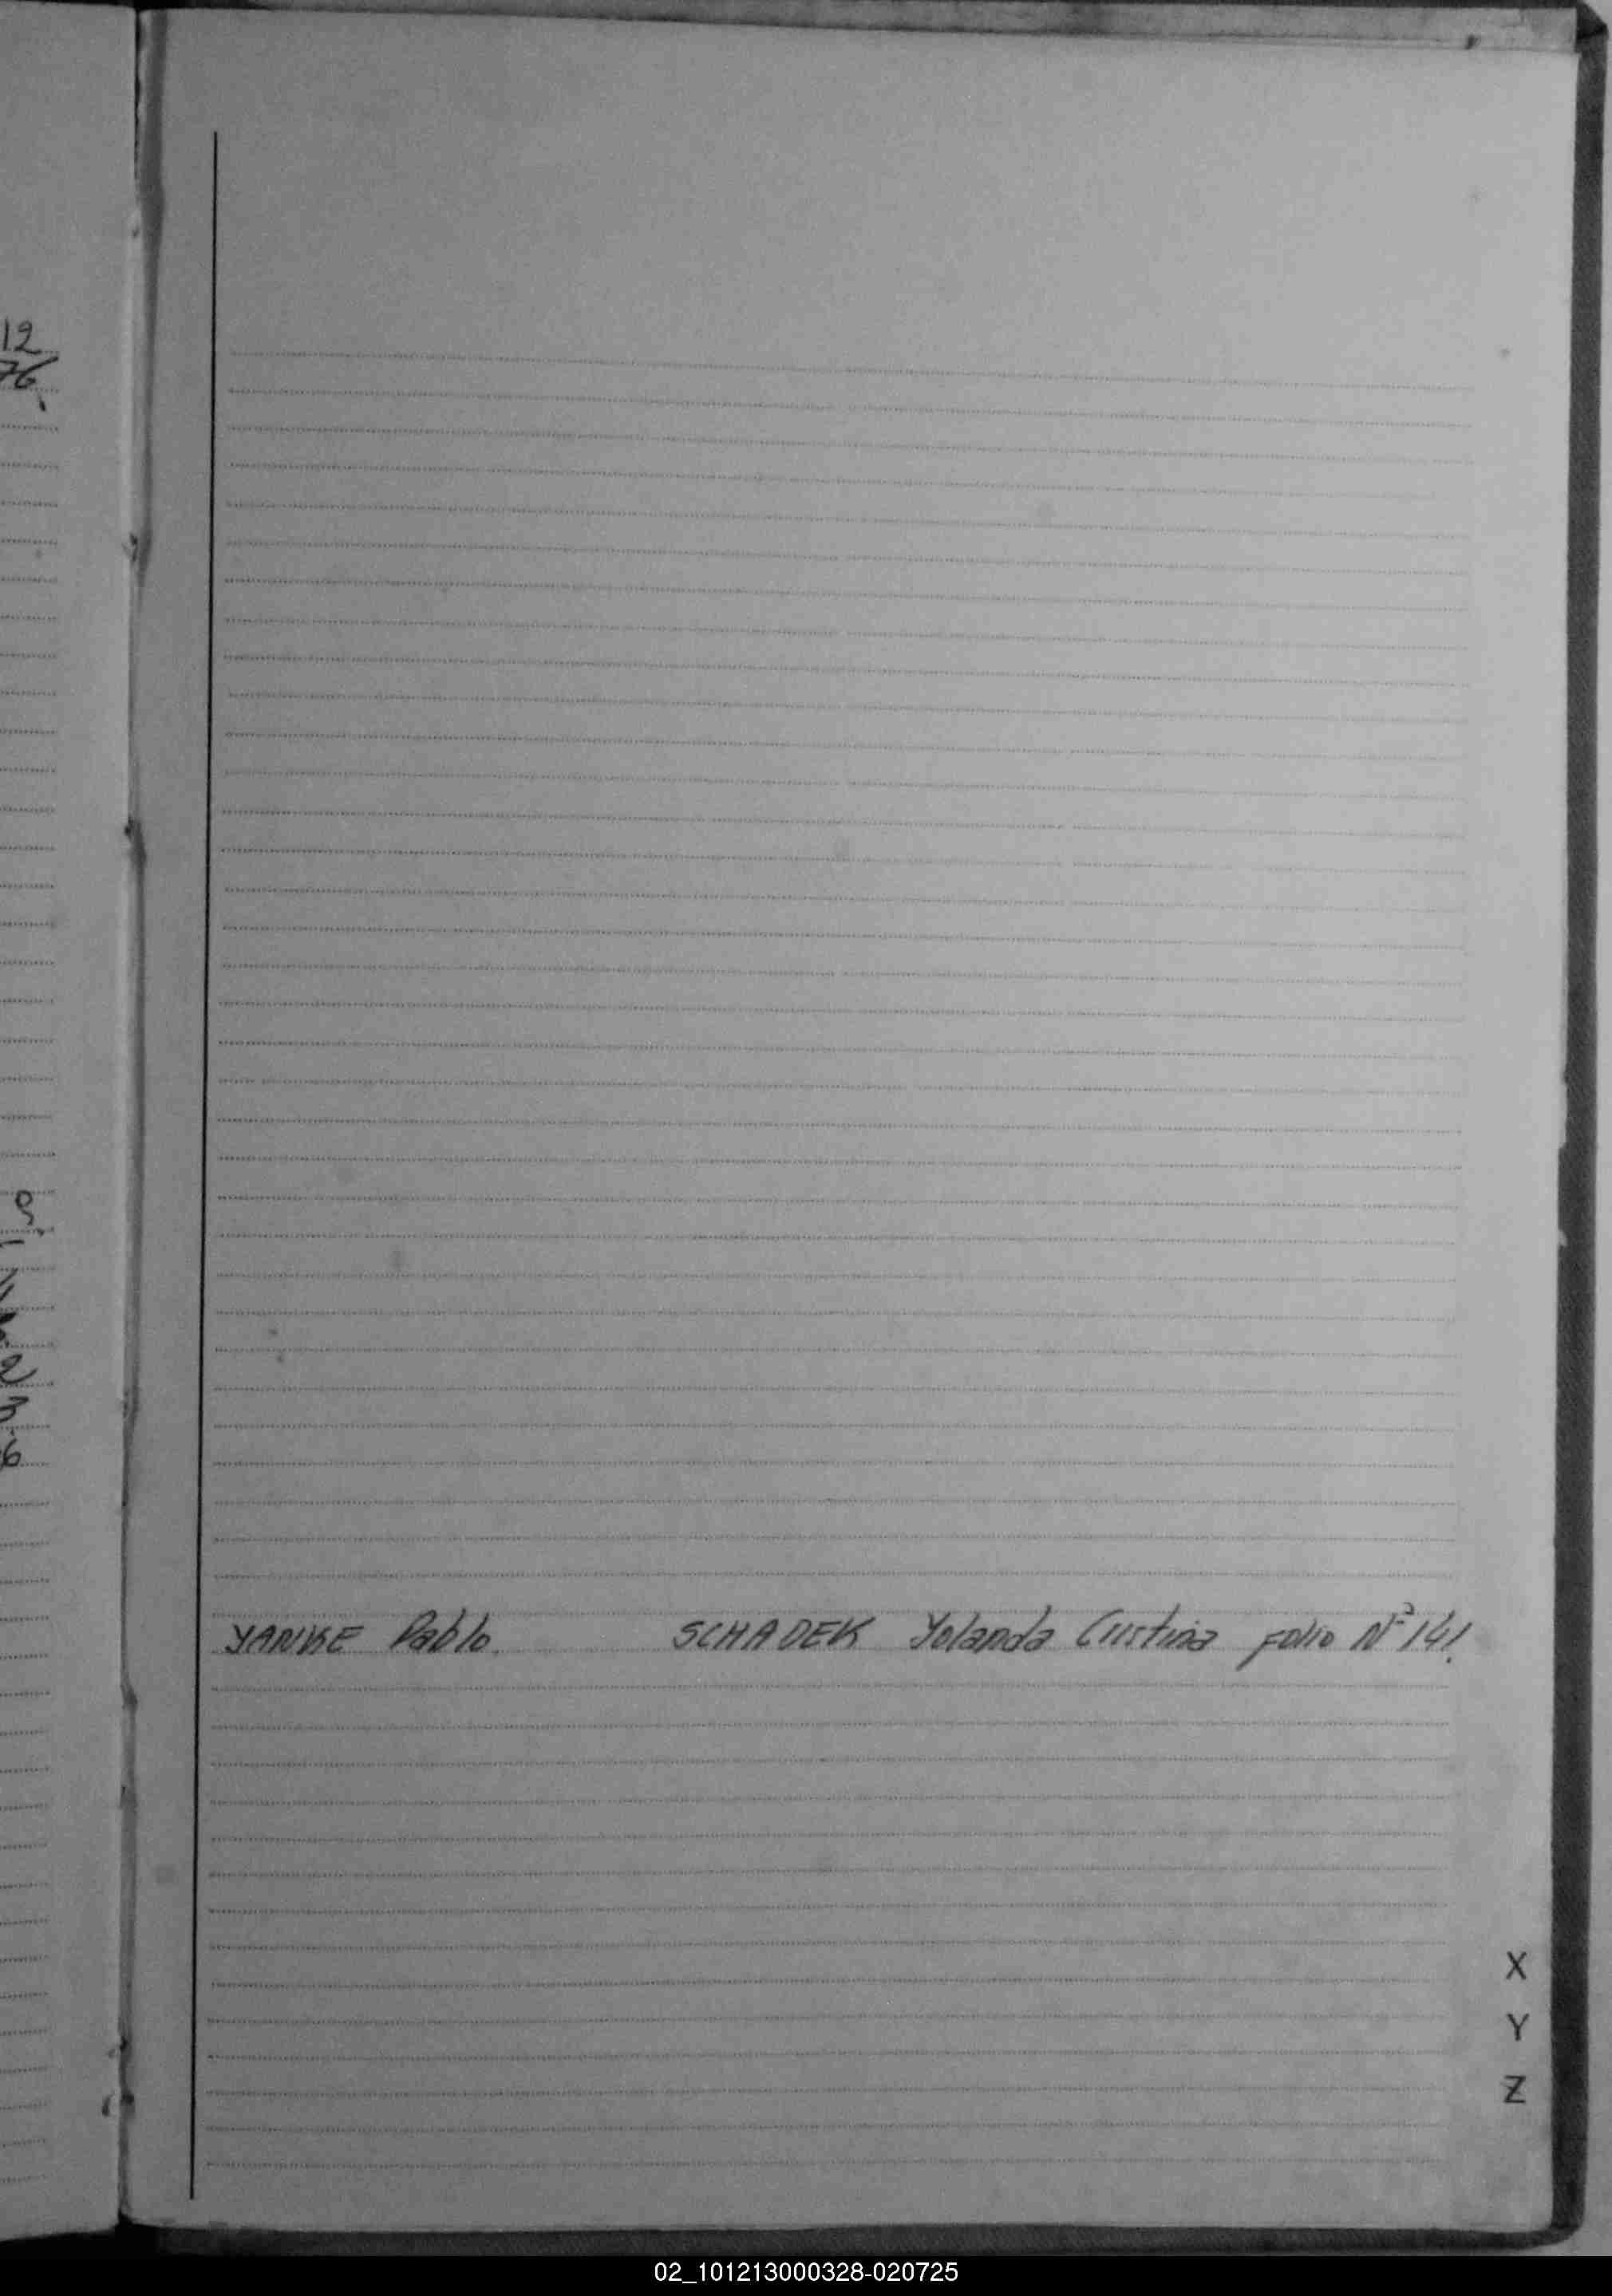 12
76
YANKE Pablo. SCHADEK Yolanda Cristina Folio Nº 141.
X
Y
Z
02_101213000328-020725